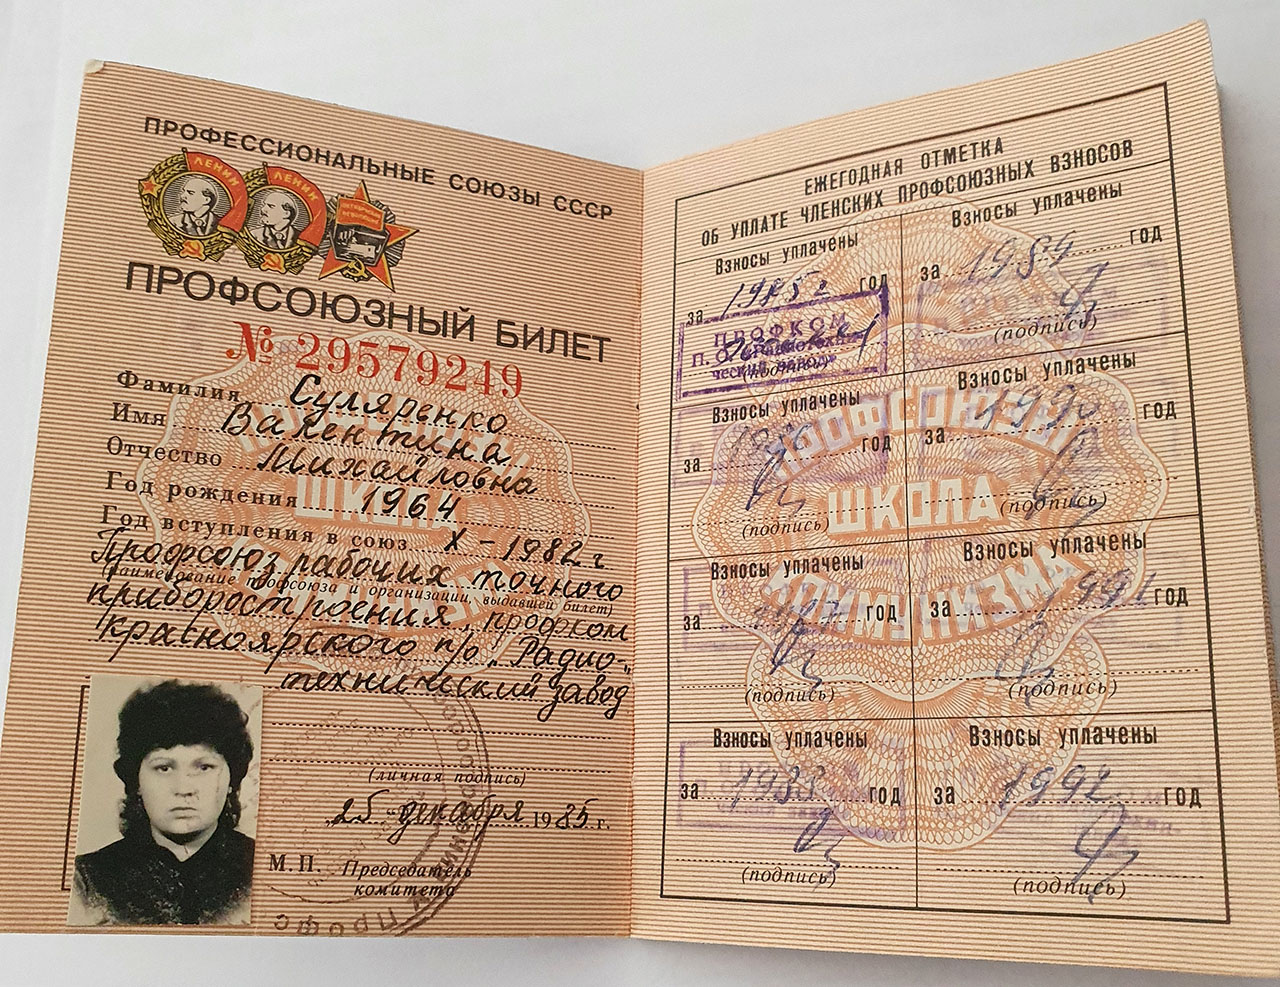 ПРОФЕССИОНАЛЬНЫЕ СОЮЗЫ СССР
ЛЕНИН
ЛЕНИН
ПРОФСОЮЗНЫЙ БИЛЕТ
№ 29579249
Фамилия Суляренко
Имя Валентина
Отчество Михайловна
Год рождения 1964
Год вступления в союз X – 1982 г
Профсоюз рабочих точного
(наименование профсоюза и организации, выдавшей билет)
приборостроения, профком
Красноярского п/о „Радио-
технический завод
(личная подпись)
„25" декабря 1985 г.
М. П. Председатель
комитета
ПРОФСОЮЗЫ
ШКОЛА
КОММУНИЗМА
ЕЖЕГОДНАЯ ОТМЕТКА
ОБ УПЛАТЕ ЧЛЕНСКИХ ПРОФСОЮЗНЫХ ВЗНОСОВ
Взносы уплачены
за 1985 г год
ПРОФКОМ
(подпись)
Взносы уплачены
за 1989 год
(подпись)
Взносы уплачены
за 1986 год
(подпись)
Взносы уплачены
за 1990 год
(подпись)
Взносы уплачены
за 1987 год
(подпись)
Взносы уплачены
за 1991 год
(подпись)
Взносы уплачены
за 1988 год
(подпись)
Взносы уплачены
за 1992 год
(подпись)
ПРОФСОЮЗЫ
ШКОЛА
КОММУНИЗМА